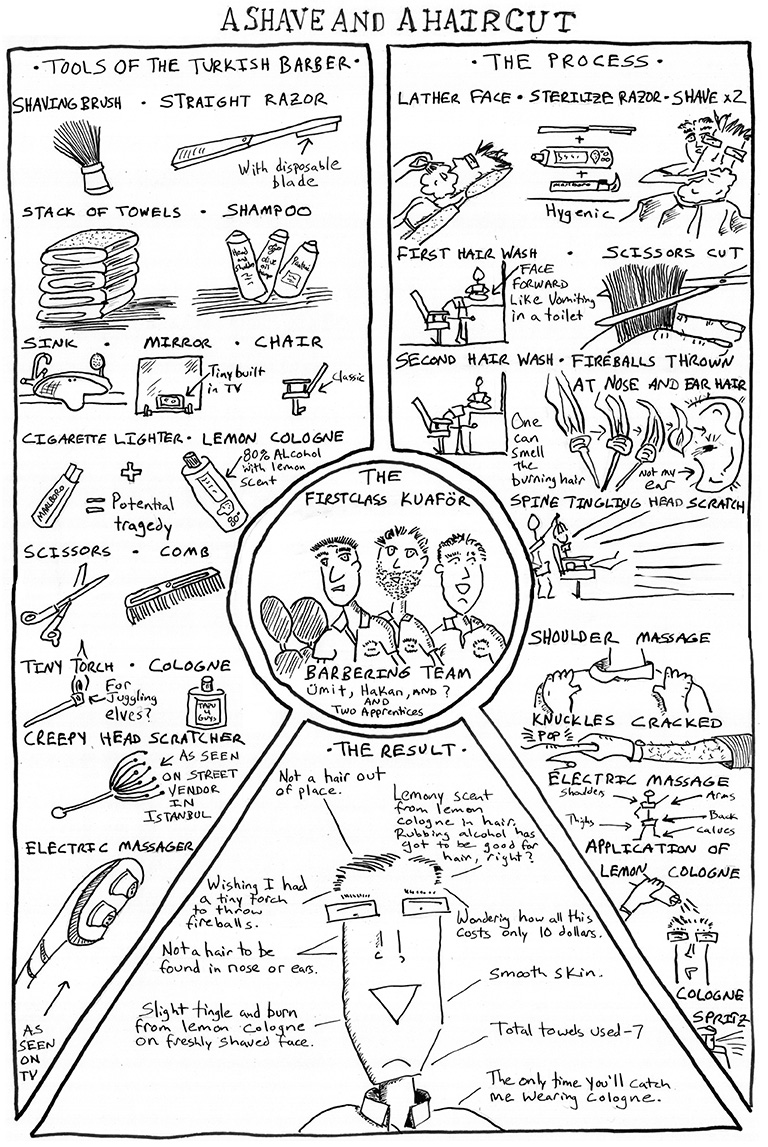 A SHAVE AND A HAIRCUT
·TOOLS OF THE TURKISH BARBER·
SHAVING BRUSH · STRAIGHT RAZOR
With disposable
blade
STACK OF TOWELS · SHAMPOO
Head
and
olive
oil
SINK · MIRROR · CHAIR
Tiny built
in TV
Classic
CIGARETTE LIGHTER · LEMON COLOGNE
80% Alcohol
with lemon
scent
MARLBORO
+
= Potential
tragedy
80°
SCISSORS · COMB
TINY TORCH · COLOGNE
For
Juggling
elves?
CREEPY HEAD SCRATCHER
AS SEEN
ON STREET
VENDOR
IN
ISTANBUL
ELECTRIC MASSAGER
AS
SEEN
ON
TV
· THE PROCESS ·
LATHER FACE · STERILIZE RAZOR · SHAVE x2
+
+
MARLBORO
Hygenic
FIRST HAIR WASH · SCISSORS CUT
FACE
FORWARD
Like Vomiting
in a toilet
SECOND HAIR WASH · FIREBALLS THROWN
AT NOSE AND EAR HAIR
One
can
smell
the
burning hair
Not my
ear
SPINE TINGLING HEAD SCRATCH
SHOULDER MASSAGE
KNUCKLES CRACKED
POP
ELECTRIC MASSAGE
Shoulders
Arms
Thighs
Back
calves
APPLICATION OF
LEMON COLOGNE
COLOGNE
SPRITZ
THE
FIRSTCLASS KUAFÖR
BARBERING TEAM
Ümit, Hakan, AND ?
AND
Two Apprentices
·THE RESULT·
Not a hair out
of place.
Lemony scent
from lemon
cologne in hair.
Rubbing alcohol has
got to be good for
hair, right?
Wishing I had
a tiny torch
to throw
fireballs.
Wondering how all this
costs only 10 dollars.
Not a hair to be
found in nose or ears.
Smooth skin.
Slight tingle and burn
from lemon cologne
on freshly shaved face.
Total towels used-7
The only time you'll catch
me wearing cologne.